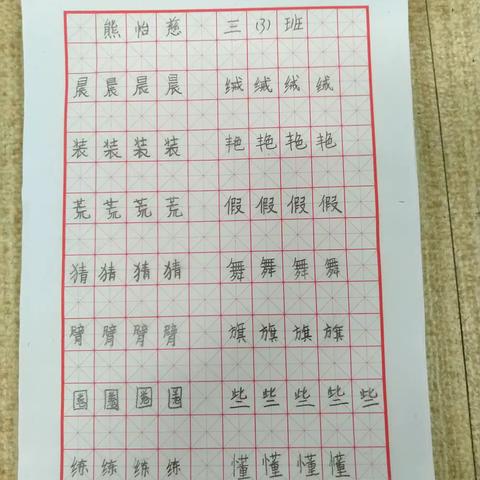 熊怡慈 三(3)班
晨晨晨晨 绒绒绒绒
装装装装 艳艳艳艳
荒荒荒荒 假假假假
猜猜猜猜 舞舞舞舞
臂臂臂臂 旗旗旗旗
圈圈圈圈 些些些些些
练练练练 懂懂懂懂